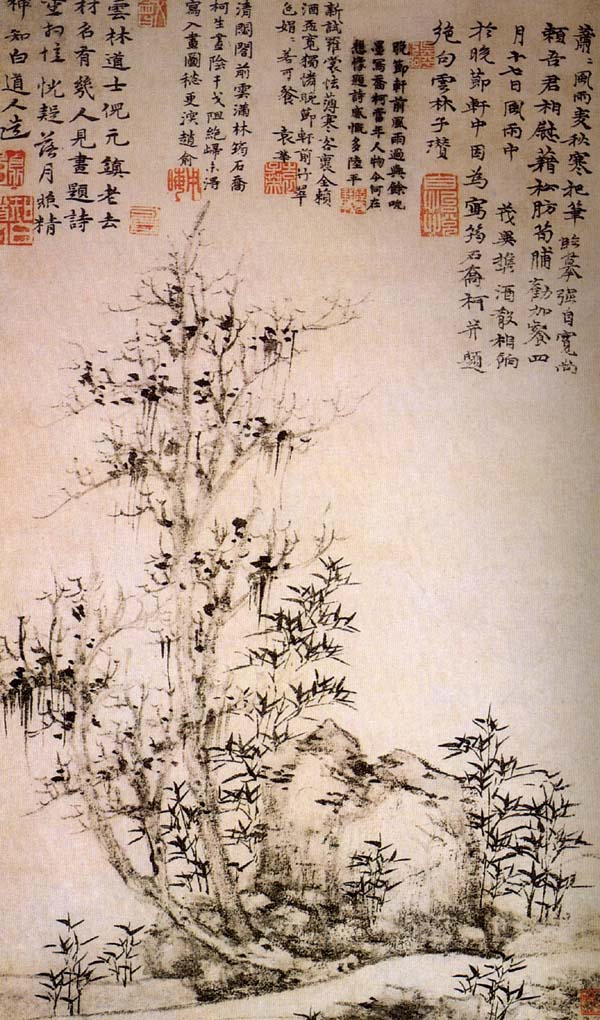 蕭〻風雨麥秋寒把筆臨摹強自寬尚
賴吾君相慰藉松肪筍脯勸加餐四
月十七日風雨中
茂異攜酒殽相餉
於晚節軒中因為寫筠石喬柯并題
絕句雲林子瓚
晚節軒前風雨過興餘吮
墨寫喬柯當年人物今何在
想像題詩感慨多陸平
新試羅裳怯薄寒客裏全賴
酒盃寬獨憐晚節軒前竹翠
色娟〻若可餐 袁華
清閟閣前雲滿林筠石喬
柯生晝陰干戈阻絕歸未得
寫入畫圖穐更深趙俞
雲林道士倪元鎮老去
材名有幾人見畫題詩
空相憶恍疑落月照精
神知白道人造